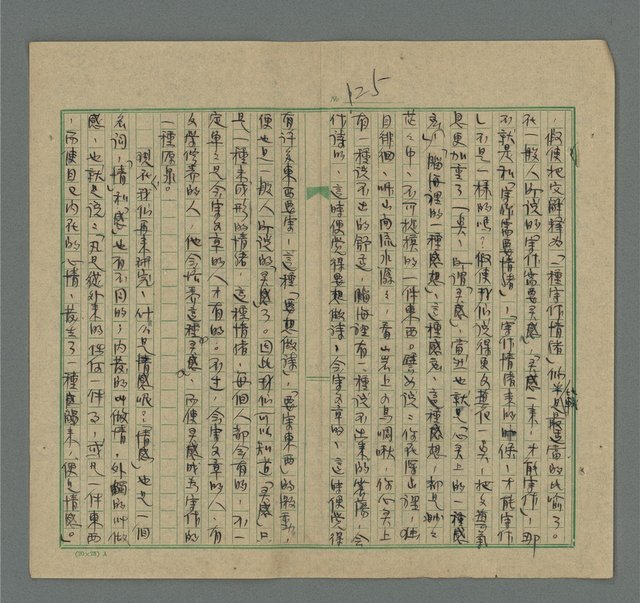 125
，假使把它解釋為「一種寫作情緒」似乎是最適當的比喻了。
在一般人所說的「寫作需要灵感」，「灵感一來，才能寫作」，那
不就是和「寫作需要情緒」，「寫作情緒來的時候，才能寫作
」不是一樣的嗎？假使我們說得更文雅一點，把
具更加重了一点，所謂「灵感」，當然也就是「心灵上的一種感
「腦海裡的一種感想」，這種感想，却是渺々
茫々中，不可捉摸的一件東西。譬如說：你在深山裡，独
目徘徊，听山間流水潺々，看山岩上的鳥啁啾，你心灵上
有一種說不出的舒適，腦海裡有一種說不出來的
作詩的，這時便覺得要想做詩，会寫文章的，這時便覺得
有許多東西要寫，這種「要想做詩」，「要寫東西」的激動，
便也是一般人所說的「灵感」了。因此我們可以知道「灵感」只
是一種未成形的情緒，這種情緒，每個人都会有的，不一
定單々是会寫文章的人才有的。不过，会寫文章的人，有
文學修养的人，他会培养這種灵感，而使灵感成為寫作的
一種原素。
現在我們再來研究，什么是情感呢？「情感」也是一個
名詞，「情」和「感」也有不同的，内發的叫做情，外觸的叫做
感，也就是說：「凡是從外來的任何一件事，或凡一件東西
，而使自己内在的心情，發生了一種感觸來，便是情感。
(20×25) A